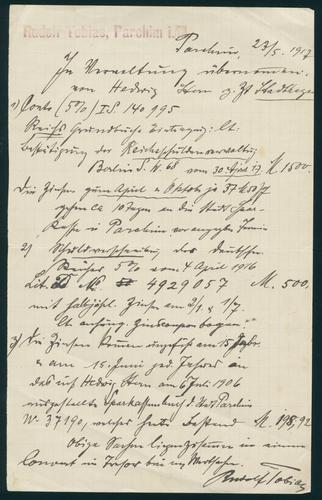 Rudolf Tobias, Parchim i. M.
Parchim, 23/5. 1917
In Verwaltung übernommen
von Hedwig Stern z. Zt
1) Conto (5%) I S. 140995
Reichs
Bestätigung der Reichsschuldenverwaltung
Berlin S. W. 68 vom 30 April 17. M 1500.
Die Zinsen zum April u. Oktob je 37 M 50 Pf
gehen ca 10 Tagen an die Stadt Spar-
Kasse in Parchim
2) Schuldverschreibung des Deutschen
Reiches 5% vom 4 April 1916
Lit. D No 4929057 M. 500.
mit halbjährl. Zinsen am 2/1 & 1/7.
Zinscouponbogen
3) Die Zinsen
am 15. Juni jed. Jahres an
das auf Hedwig Stern am 6 Juli 1906
ausgestellte Sparkassenbuch d. Stadt Parchim
No 37190, welches heute Bestand M. 198,92
Obige Sachen liegen zusammen in einem
Couvert im Tresor bei
Rudolf Tobias